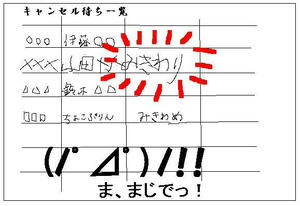 キャンセル待ち一覧
○○○ 伊藤○○
××× 山田×× みきわり
△△△ 鈴木△△
□□□ ちょこぷりん みきわめ
(ﾉ゜⊿゜)ﾉ!!
ま、まじでっ！